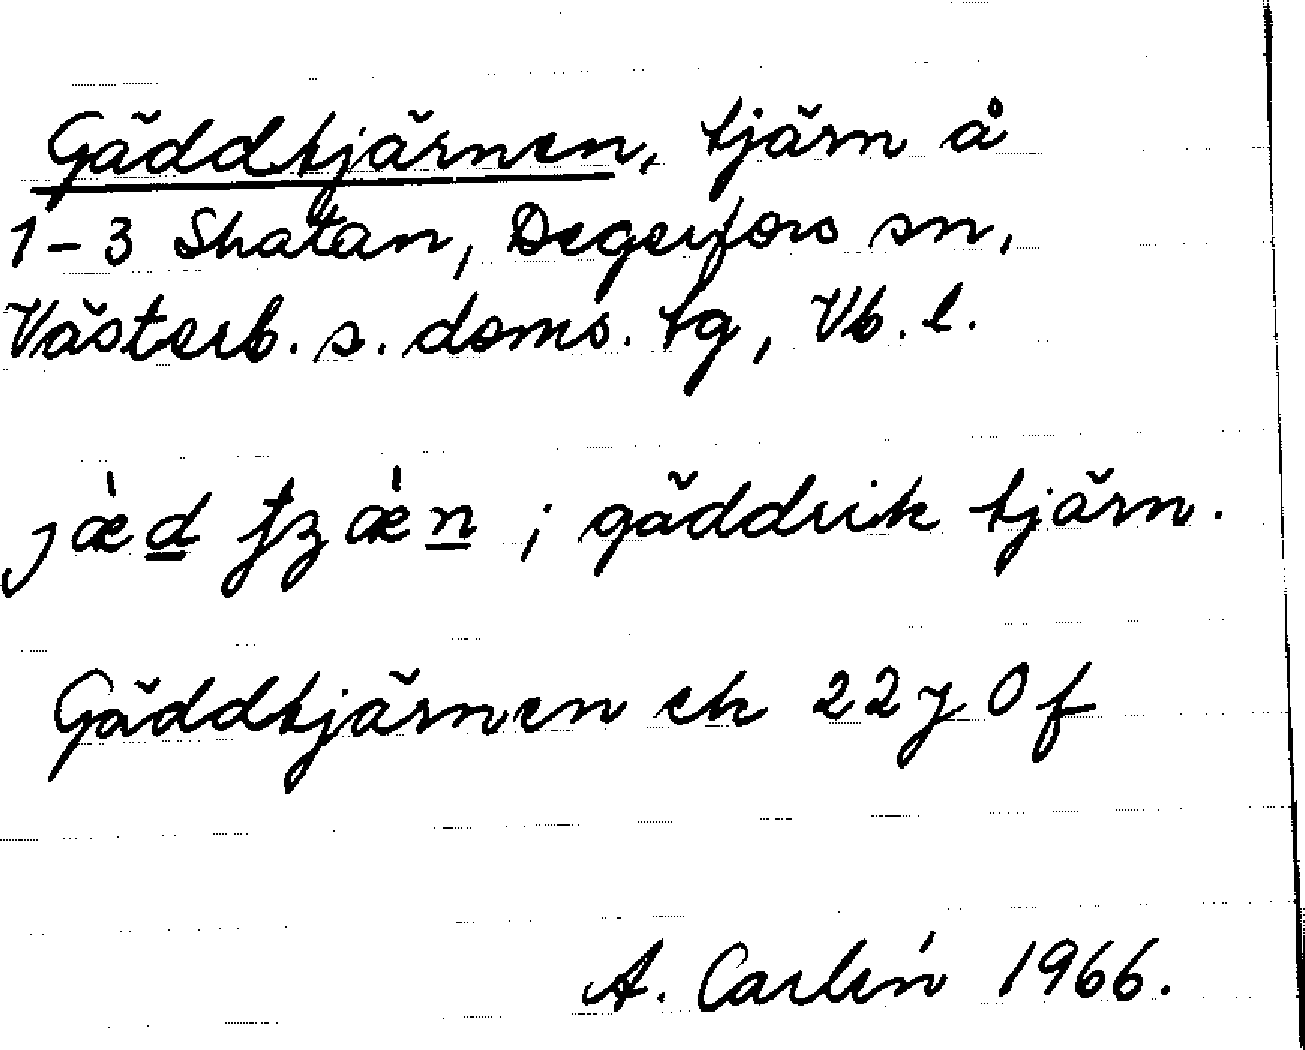 Gäddtjärnen, tjärn å
1-3 Skatan, Degerfors sn,
Västerb. s. doms. tg, Vb. l.
; gäddrik tjärn.
Gäddtjärnen ek 22 J 0 f
A. Carlén 1966.